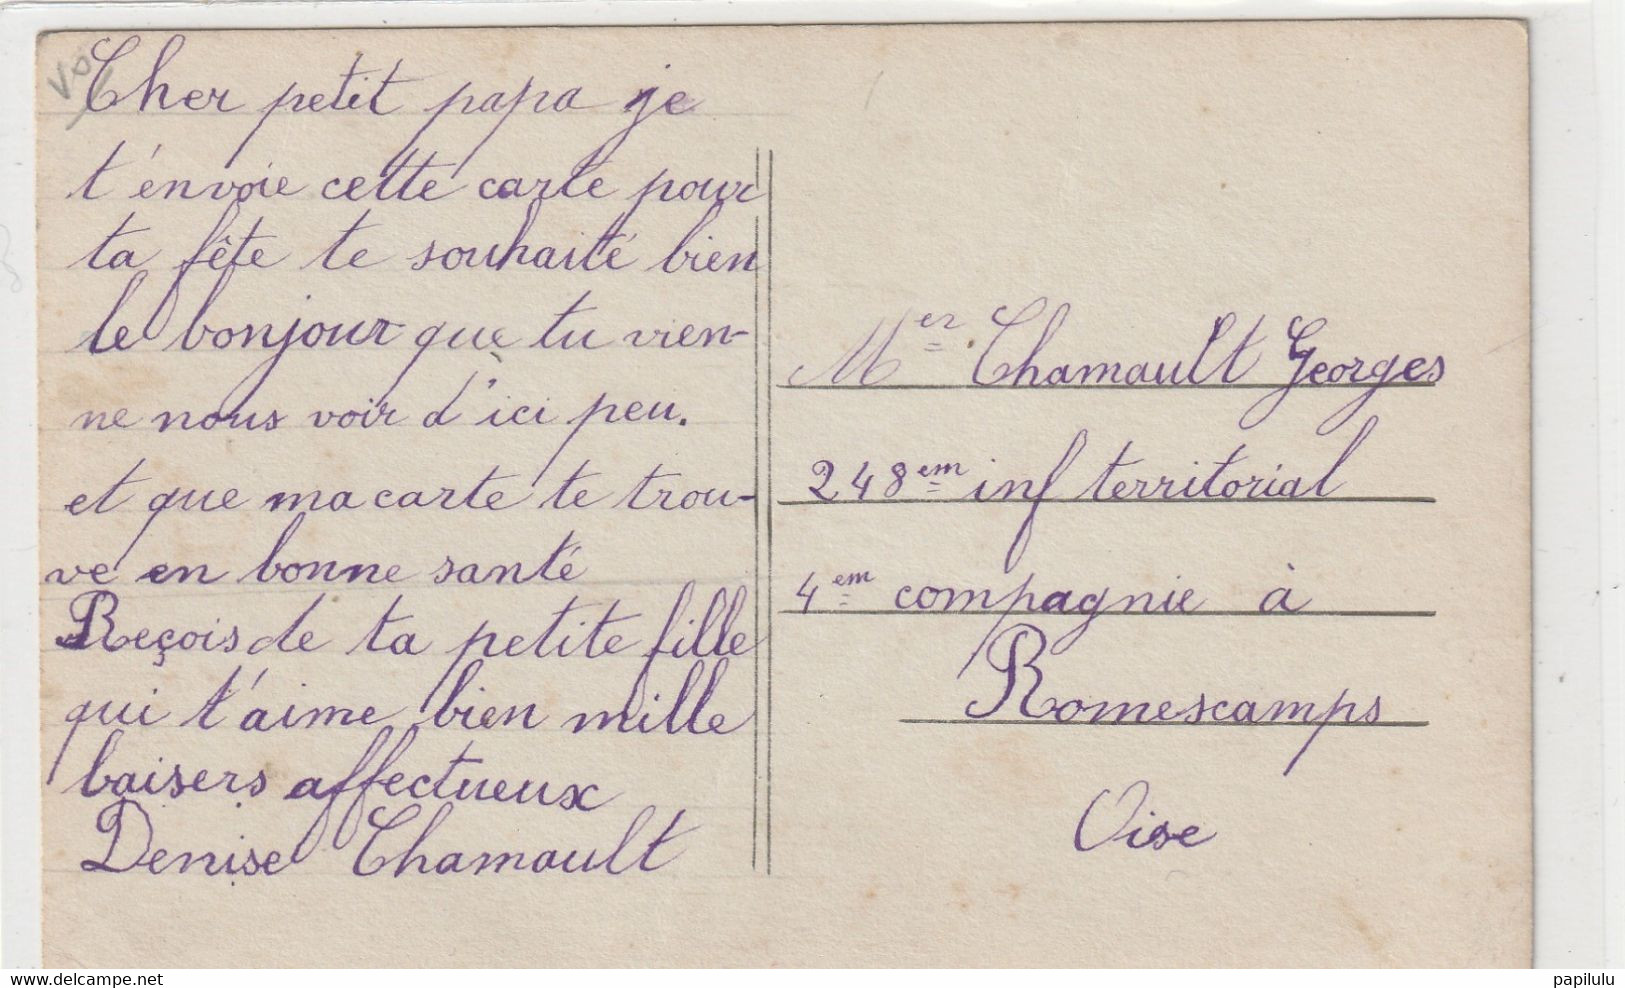 Cher petit papa je
t'énvoie cette carte pour
ta fête te souhaité bien
le bonjour que tu vien-
ne nous voir d'ici peu.
et que ma carte te trou-
ve en bonne santé
Reçois de ta petite fille
qui t'aime bien mille
baisers affectueux
Denise Chamault
Mer Chamault Georges
248em inf territorial
4em compagnie à
Romescamps
Oise
delcampe.net
papilulu